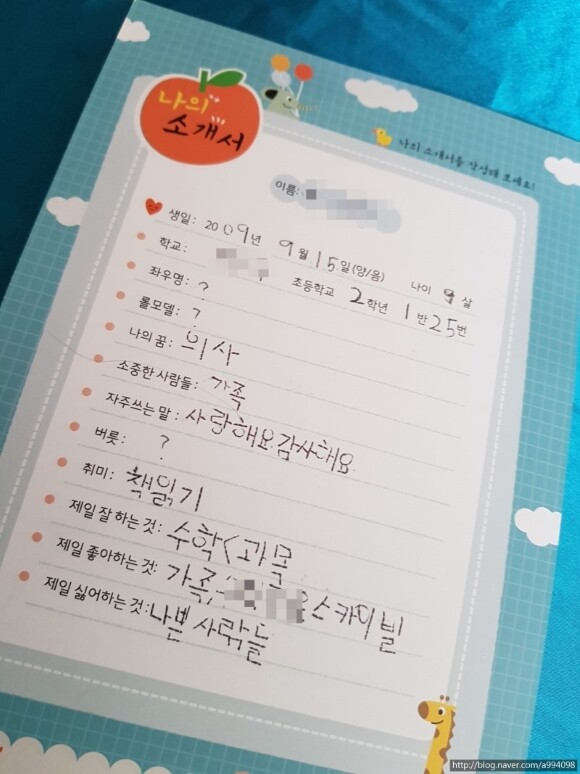 나의
소개서
나의 소개서를 작성해 보세요!
이름:
생일: 2009년 9월 15일(양/음) 나이 9 살
학교: 초등학교 2학년 1반 25번
좌우명: ?
롤모델: ?
나의 꿈: 의사
소중한 사람들: 가족
자주쓰는 말: 사랑해요.감사해요.
버릇: ?
취미: 책읽기
제일 잘 하는 것: 수학<과목
제일 좋아하는 것: 가족, 스카이빌
제일 싫어하는 것: 나쁜 사람들
http://blog.naver.com/a994098